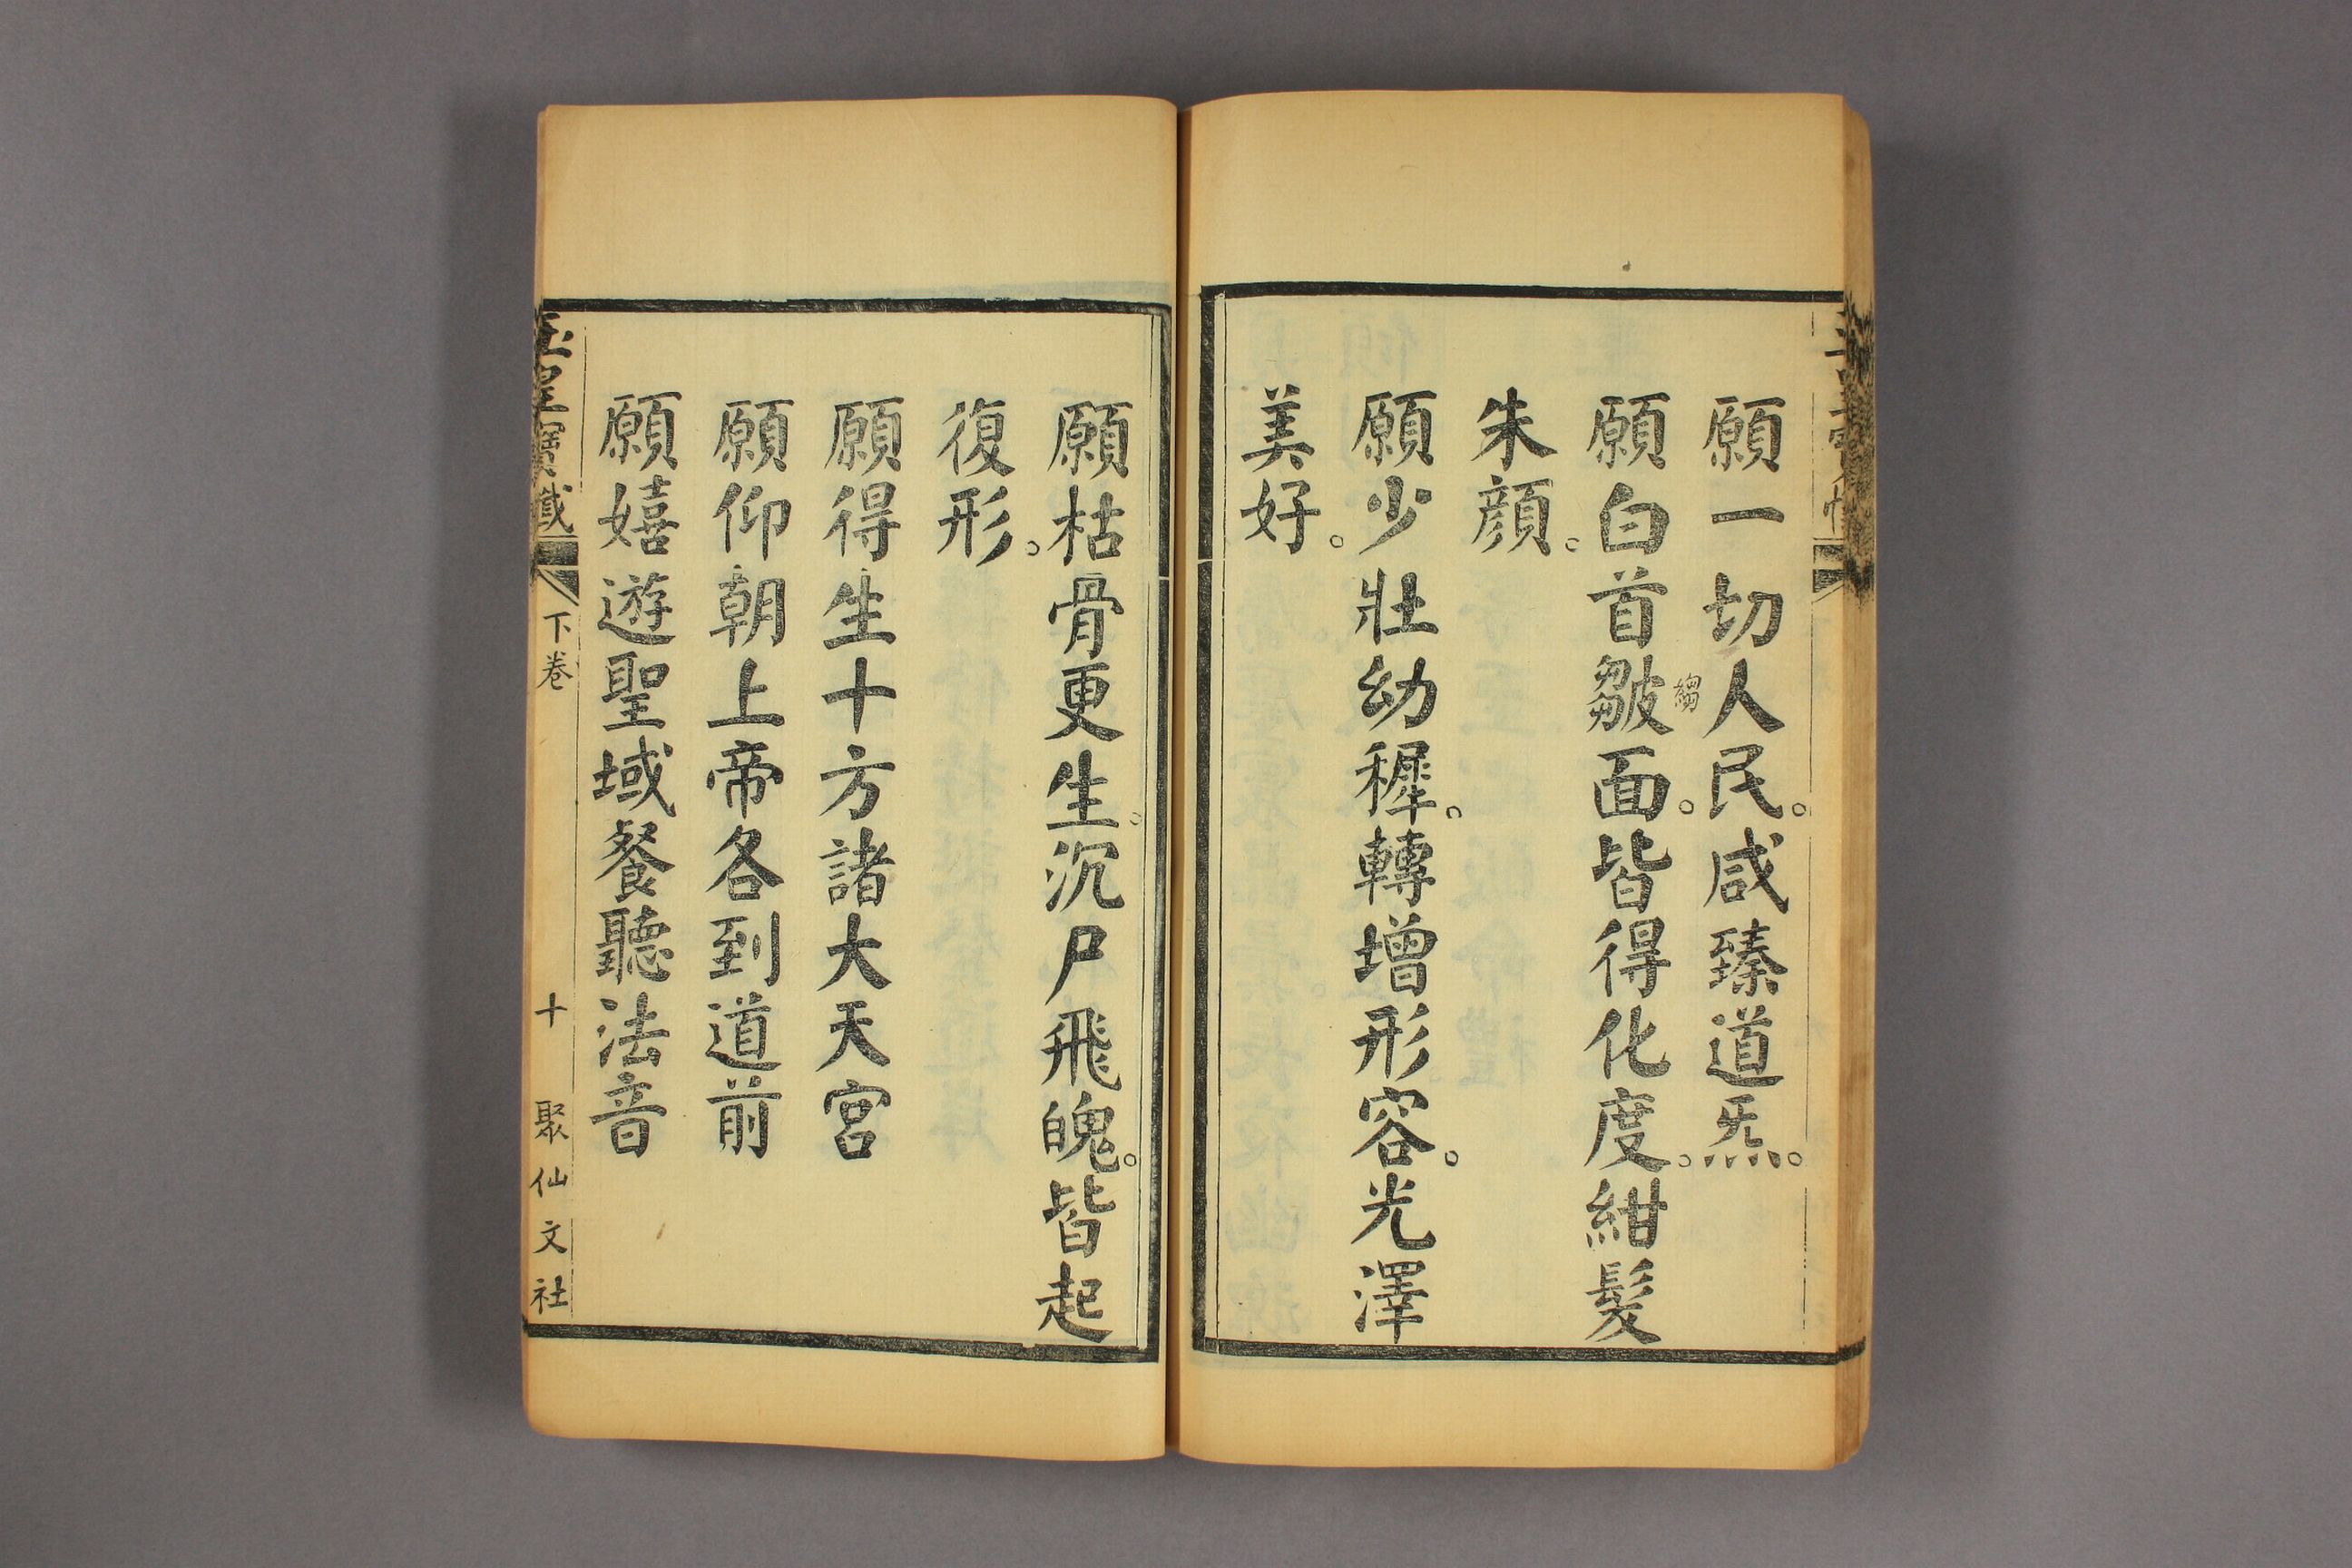 願一切人民。咸臻道炁。
願白首皺面。皆得化度。紺髮
縐
朱顏。
願少壯幼稺。轉增形容。光澤
美好。
願枯骨更生。沉尸飛魄。皆起
復形。
願得生十方諸大天宮
願仰朝上帝各到道前
願嬉遊聖域餐聽法音
玉皇寶懺 下卷 十 聚仙文社